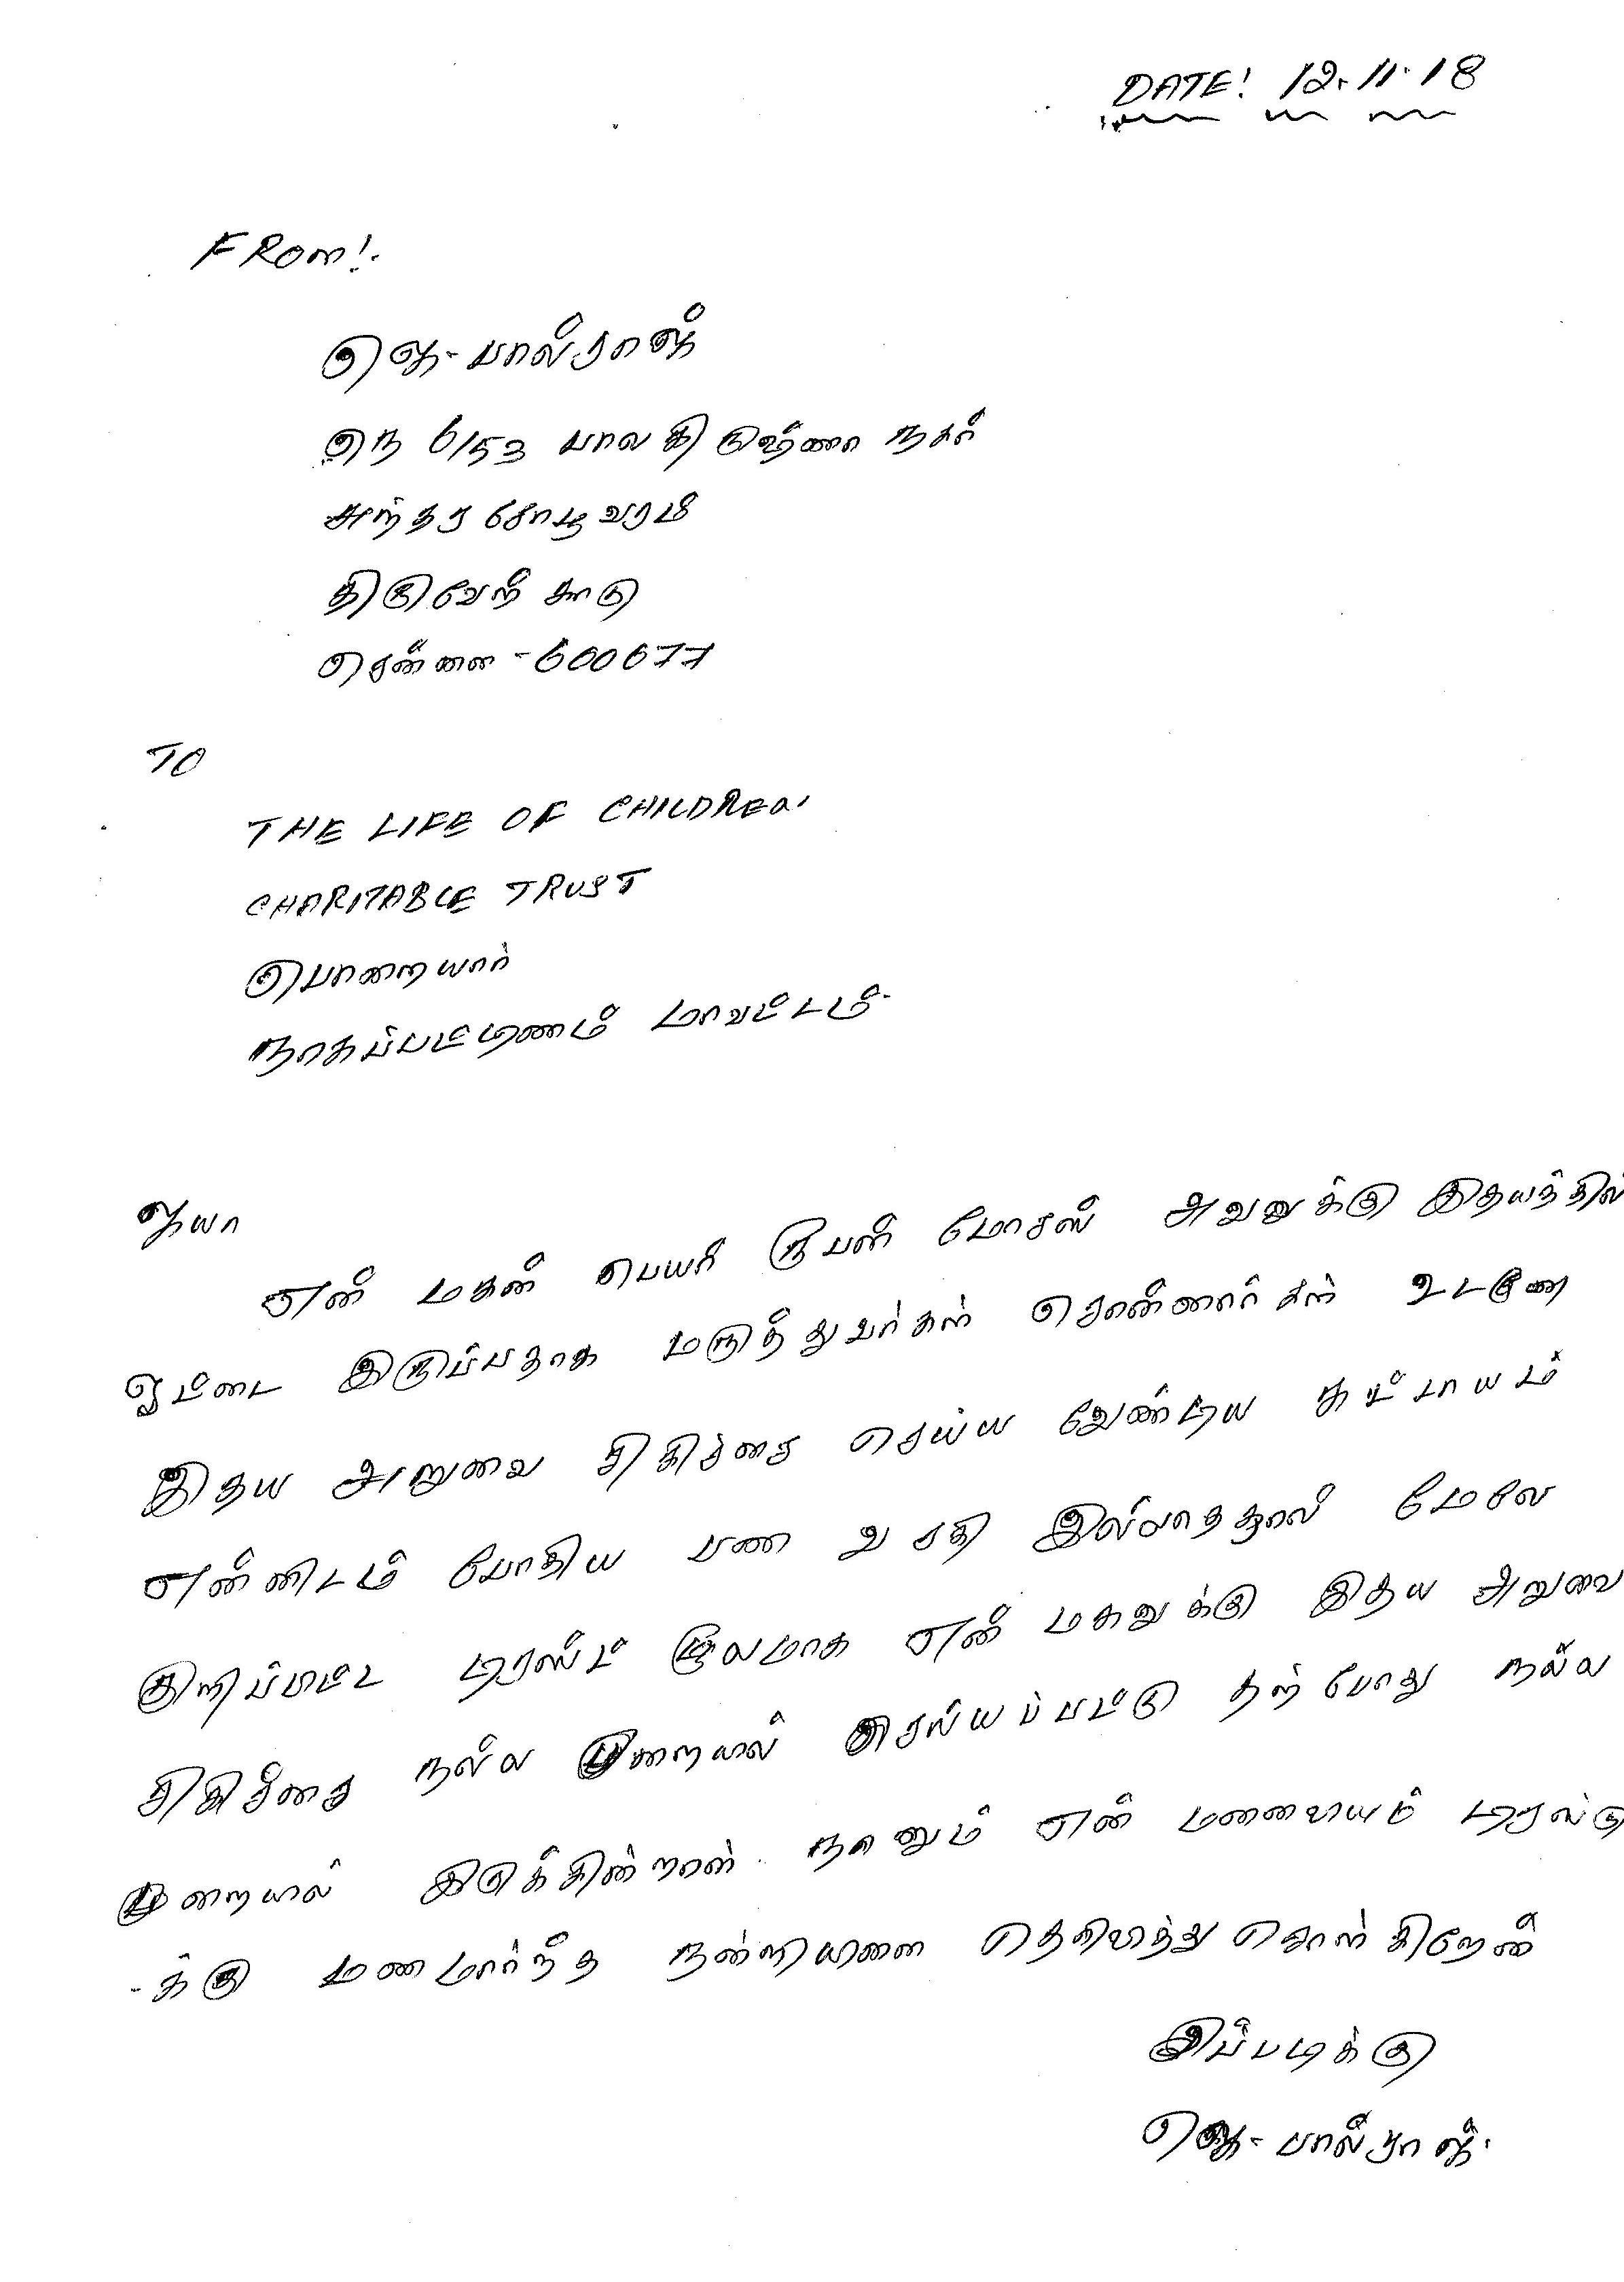 DATE! 12.11.18
FROM!.
ஜெ. பால்ராஜ்
நெ 6/53 பாலகிருஷ்ணா நகர்
அந்தரசோழவரம்
திருவேற் காடு
சென்னை - 600077
TO
THE LIFE OF CHILDREN
CHARITABLE TRUST
பொறையார்
நாகப்பட்டிணம் மாவட்டம்.
ஐயா
என் மகன் பெயர் ரூபன் மோசஸ் அவனுக்கு இதயத்தில்
ஓட்டை இருப்பதாக மருத்துவர்கள் சொன்னார்கள் உடனே
இதய அறுவை சிகிச்சை செய்ய வேண்டிய கட்டாயம்
என்னிடம் போதிய பண வசதி இல்லாததால் மேலே
குறிப்பிட்ட டிரஸ்ட் மூலமாக என் மகனுக்கு இதய அறுவை
சிகிச்சை நல்ல முறையில் செய்யப்பட்டு தற்போது நல்ல
முறையில் இருக்கின்றான். நானும் என் மனைவியும் டிரஸ்டு
-க்கு மணமார்ந்த நன்றியினை தெரிவித்து கொள்கிறேன்
இப்படிக்கு
ஜெ. பால்ராஜ்.